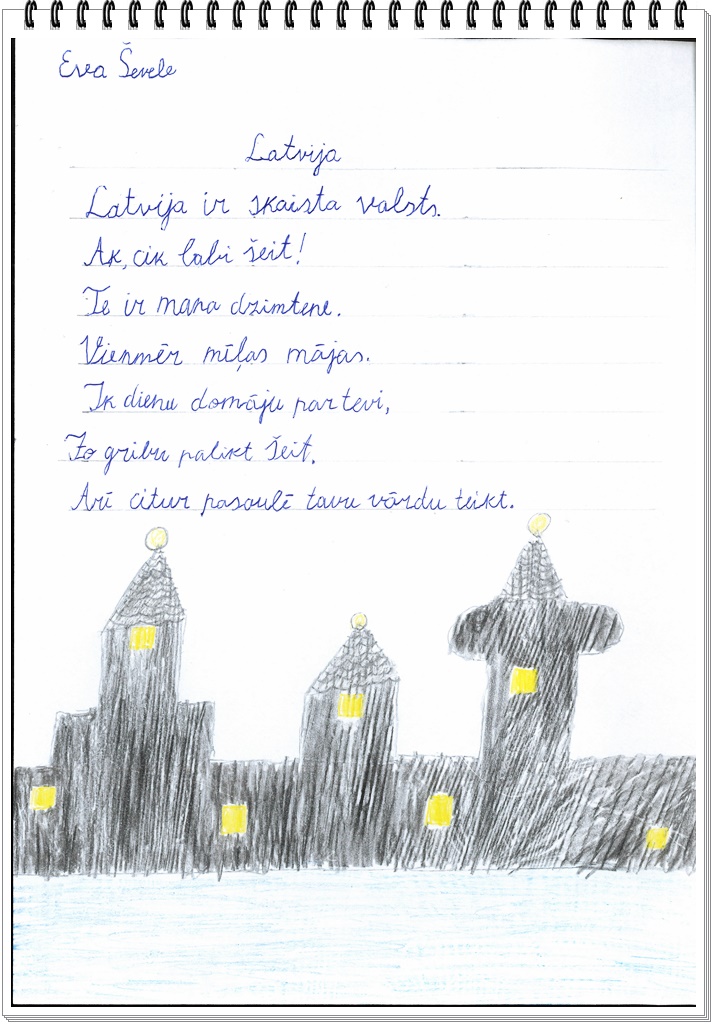 Eva Ševele
Latvija
Latvija ir skaista valsts.
Ak, cik labi šeit!
Te ir mana dzimtene.
Vienmēr mīļas mājas.
Ik dienu domāju par tevi,
Jo gribu palikt šeit.
Arī citur pasaulē tavu vārdu teikt.